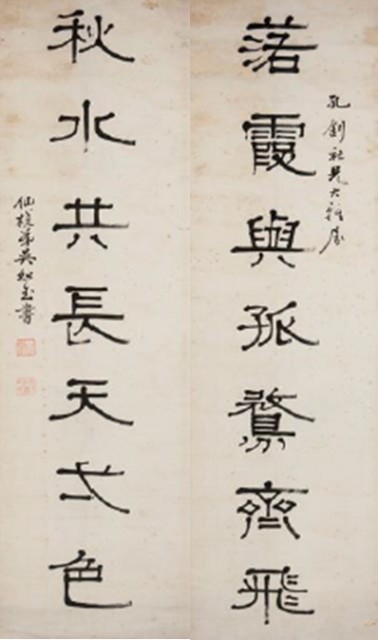 孔釗社兄大雅屬
落霞與孤鶩齊飛
秋水共長天弌色
弟吳書